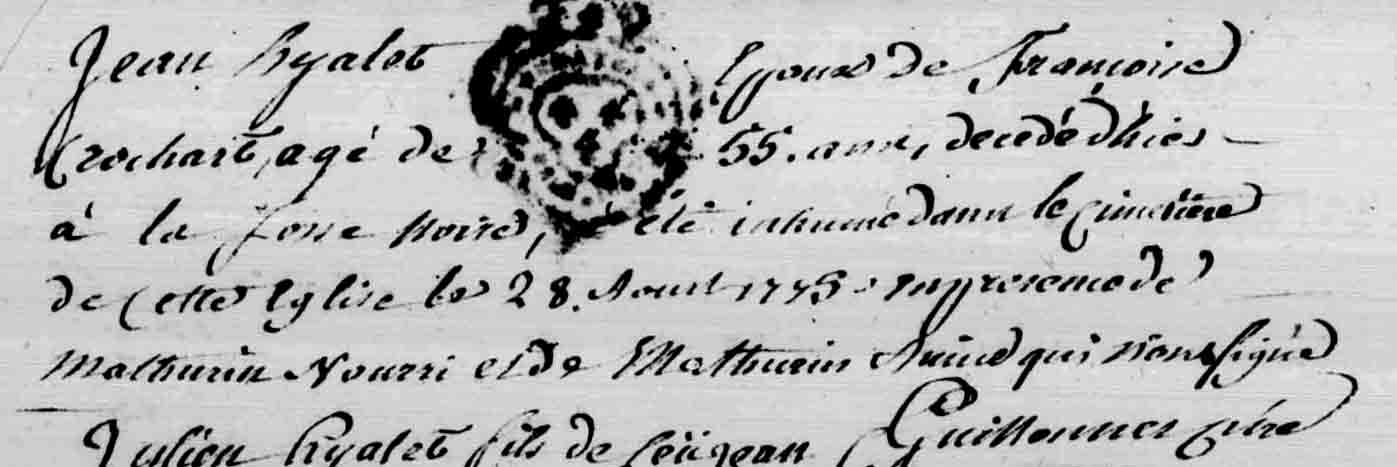 Jean Ryalet Epoux de Francoise
Crochart, agé de 55. ans, decedé d'hier
à la fosse noire, a été inhumé dans le cimetière
de Cette Eglise le 28. Aoust 1775. en presence de
Mathurin Nourri et de Mathurin qui n'ont signé
Guillonner
Julien Ryalet fils de feu jean